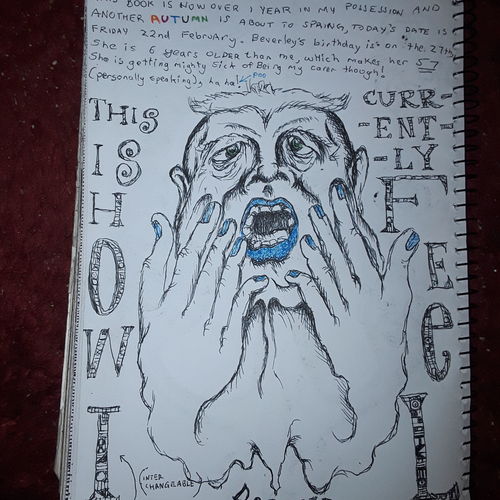 BOOK IS NOW OVER 1 YEAR IN MY POSSESSION AND
ANOTHER AUTUMN IS ABOUT TO SPRING, TODAY'S DATE IS
FRIDAY 22nd FEBRUARY. Beverley's birthday is on the 27th
She is 6 years OLDER than me, which makes her 57
She is getting mighty sick of being my carer though!
(personally speaking), ha ha!
POO
THIS
IS
HOW
I
CURR-
-ENT-
-LY
FEEL
INTER
CHANGEABLE